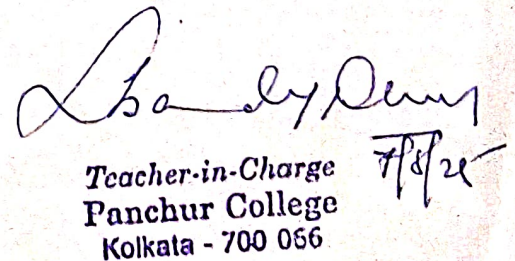 Teacher-in-Charge
7/8/25
Panchur College
Kolkata - 700 066